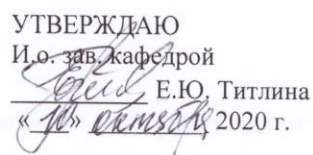 УТВЕРЖДАЮ
И.о. зав. кафедрой
Е.Ю. Титлина
« » октября 2020 г.